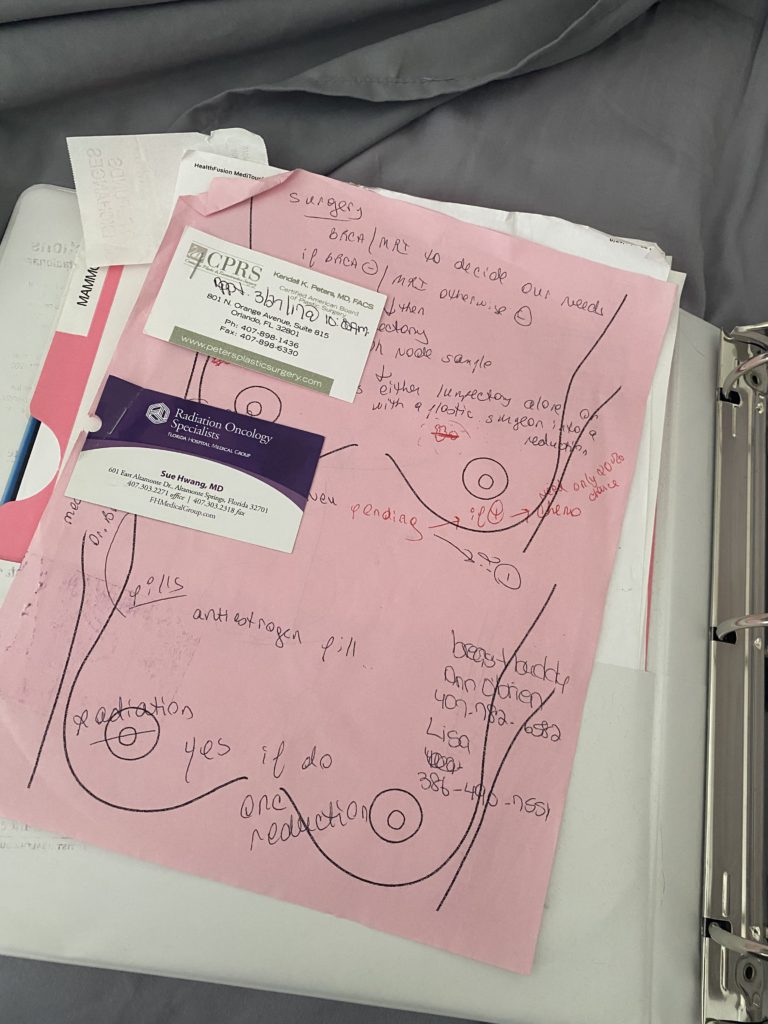 HealthFusion MediTou
Surgery
BRCA/MRI to decide our needs
if BRCA ⊖/MRI otherwise ⊖
then
node sample
either lumpectory alone or
with a plastic surgeon into a
reduction
CPRS
Kendall K. Peters, MD, FACS
Certified American Board
of Plastic Surgery
10:00am
801 N. Orange Avenue, Suite 815
Orlando, FL 32801
Ph: 407-898-1436
Fax: 407-898-6330
www.petersplasticsurgery.com
MAMMO
Radiation Oncology
Specialists
FLORIDA HOSPITAL MEDICAL GROUP
Sue Hwang, MD
601 East Altamonte Dr., Altamonte Springs, Florida 32701
407.303.2271 office | 407.303.2318 fax
FHMedicalGroup.com
pending
if ⊕
need only 20%
chemo chance
Dr. B
pills
antiestrogen pill
breast buddy
Ann O'Brien
407-782-6582
Lisa
386-490-7551
radiation
yes if do
onc
reduction